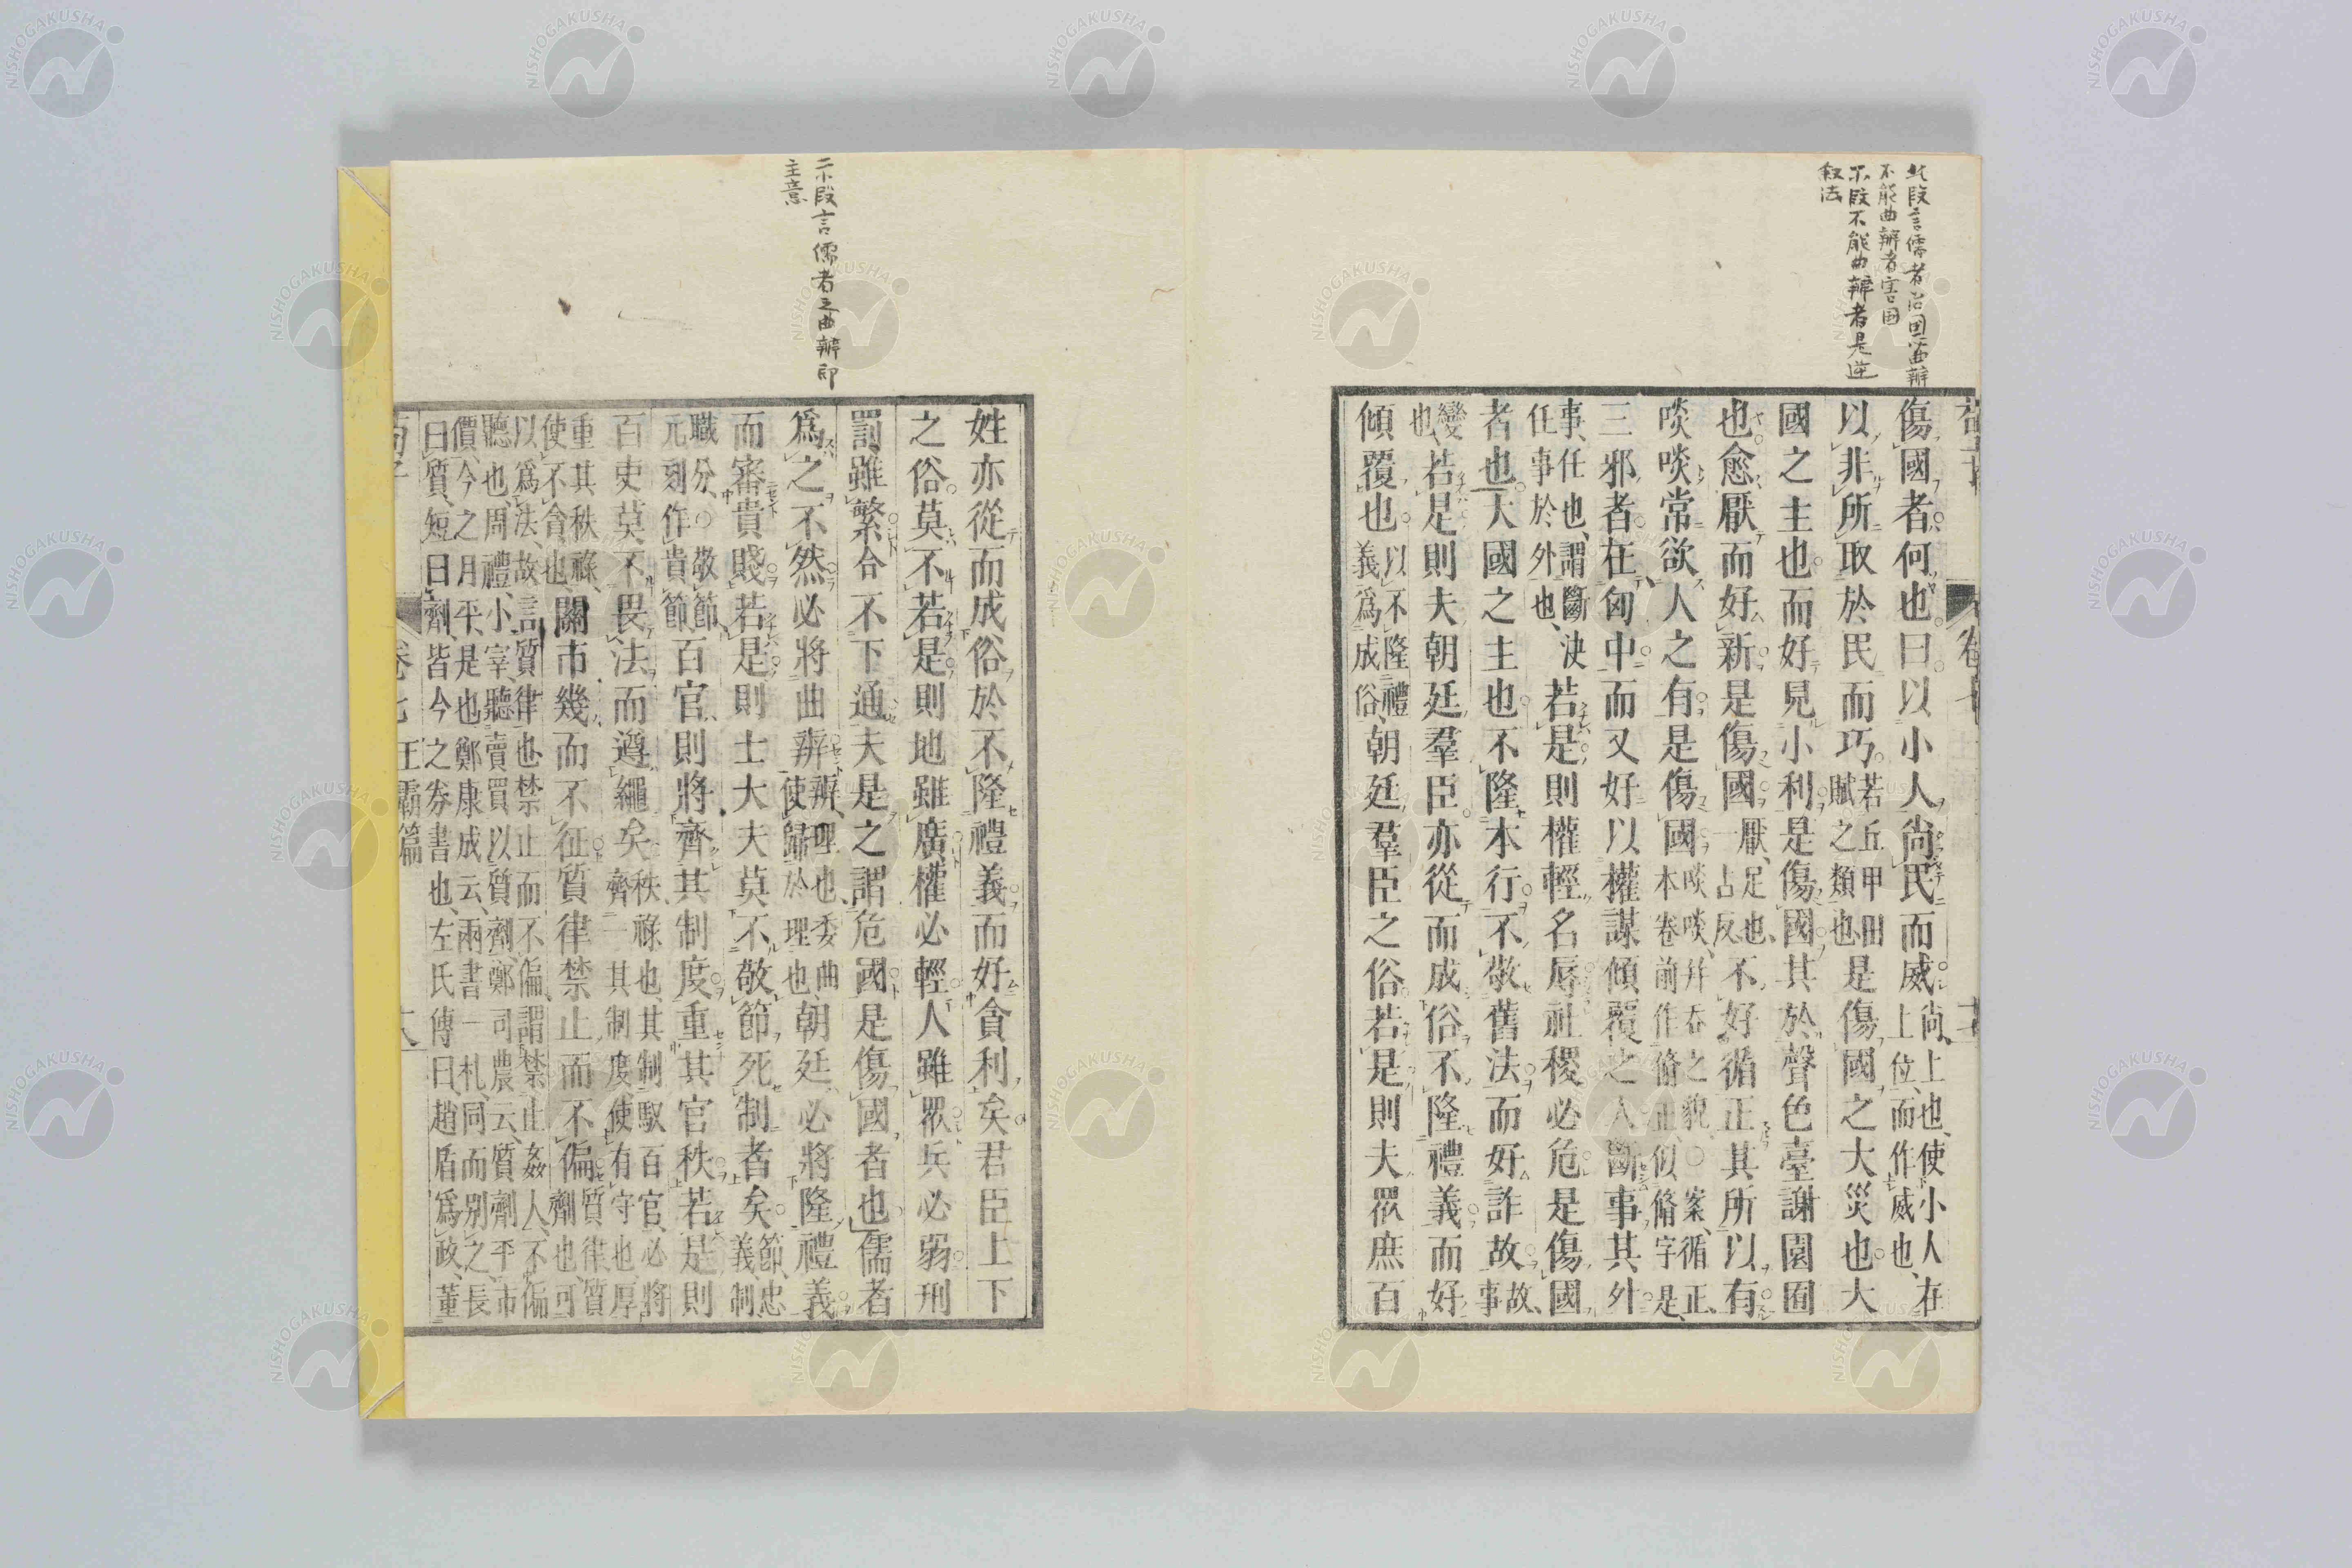 此段言儒者治国曲辨
不能曲辨者害国
不段不能曲辨者是逆
叙法
傷國者何也曰以小人尚民而威尚上也使小人在上位而作威也
以非所取於民而巧若丘甲田賦之類也是傷國之大災也大
國之主也而好見小利是傷國其於聲色臺謝園囿
也愈厭而好新是傷國厭足也一占反不好循正其所以有
啖啖常欲人之有是傷國啖啖幷呑之貌○案循正本卷前作脩正似脩字是
三邪者在匈中而又好以權謀傾覆之人斷事其外
事任也謂斷決任事於外也若是則權輕名辱社稷必危是傷國
者也大國之主也不隆本行不敬舊法而好詐故故事
變也若是則夫朝廷羣臣亦從而成俗不隆禮義而好
傾覆也以不隆禮義爲成俗朝廷羣臣之俗若是則夫眾庶百
二小段言儒者之曲辨即
主意
姓亦從而成俗於不隆禮義而好貪利矣君臣上下
之俗莫不若是則地雖廣權必輕人雖眾兵必弱刑
罰雖繁令不下通夫是之謂危國是傷國者也儒者
爲之不然必將曲辨辨理也委曲使歸於理也朝廷必將隆禮義
而審貴賤若是則士大夫莫不敬節死制者矣節忠義制
職分○敬節元刻作貴節百官則將齊其制度重其官秩若是則
百吏莫不畏法而遵繩矣秩祿也其制馭百官必將齊一其制度使有守也厚
重其秩祿使不貪也關市幾而不征質律禁止而不偏質律質劑也可
以爲法故言質律也禁止而不偏謂禁止姦人不偏
聽也周禮小宰聽賣買以質劑鄭司農云質劑平市
價今之月平是也鄭康成云兩書一札同而別之長
曰質短曰劑皆今之券書也左氏傳曰趙盾爲政董
卷七 王霸篇